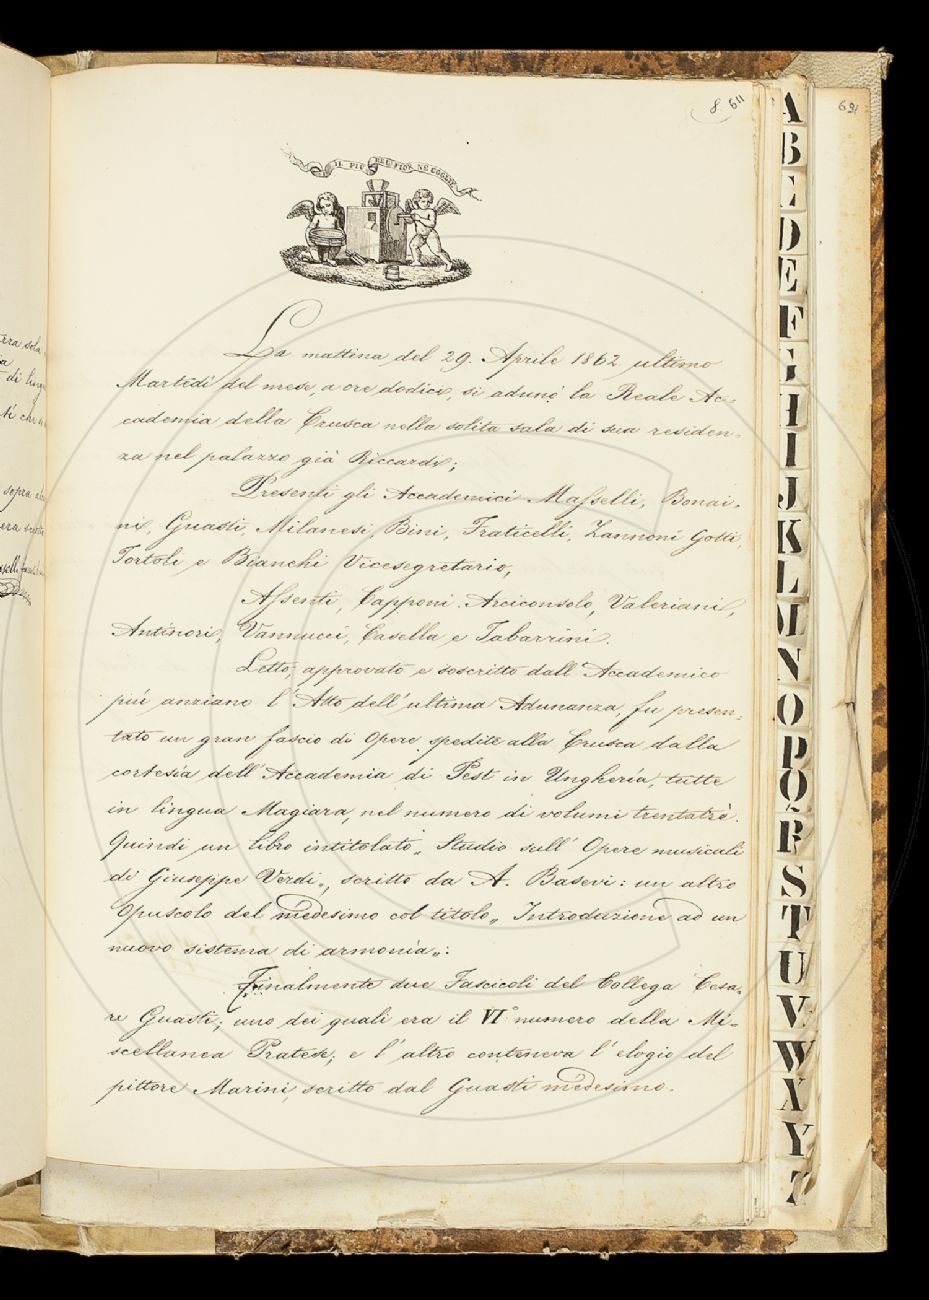 8. 611
691
IL PIÙ BEL FIOR NE COGLIE
La mattina del 29. Aprile 1862. ultimo
Martedì del mese, a ore dodici, si adunò la Reale Ac=
cademia della Crusca nella solita sala di sua residen=
za nel palazzo già Riccardi;
Presenti gli Accademici Masselli, Bonai=
ni, Guasti, Milanesi, Bini, Fraticelli, Zannoni Gotti,
Tortoli e Bianchi Vicesegretario,
Assenti, Capponi Arciconsolo, Valeriani,
Antinori, Vannucci, Casella e Tabarrini.
Letto, approvato e soscritto dall'Accademico
più anziano l'Atto dell'ultima Adunanza fu presen=
tato un gran fascio di Opere spedite alla Crusca dalla
cortesia dell'Accademia di Pest in Ungheria, tutte
in lingua Magiara, nel numero di volumi trentatrè.
Quindi un libro intitolato „ Studio sull'Opere musicali
di Giuseppe Verdi „ scritto da A. Basevi: un altro
Opuscolo del medesimo col titolo „ Introduzione ad un
nuovo sistema di armonia „:
Finalmente due Fascicoli del Collega Cesa=
re Guasti; uno dei quali era il VI° numero della Mi=
scellanea Pratese; e l'altro conteneva l'elogio del
pittore Marini, scritto dal Guasti medesimo.
sola
di
sopra
era
A
B
C
D
E
F
G
H
I
J
K
L
M
N
O
P
Q
R
S
T
U
V
W
X
Y
Z